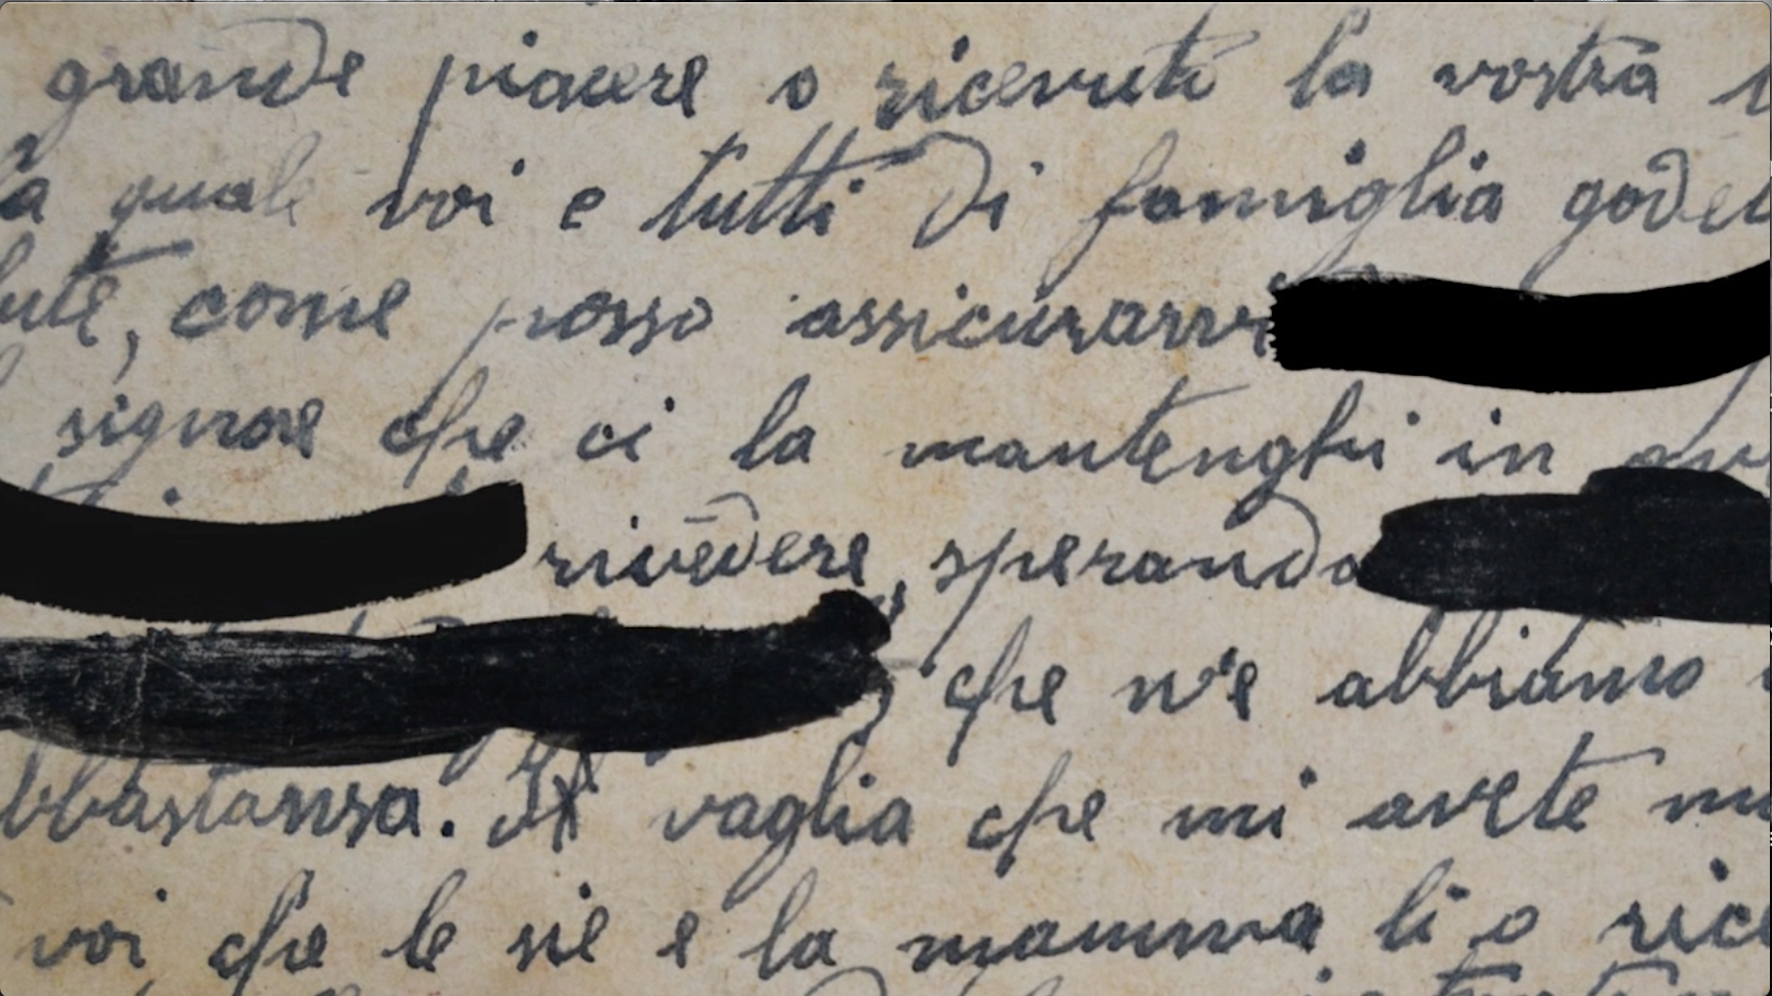 grande piacere o ricevuto la vostra
la quale voi e tutti di famiglia
lute, come posso assicurarvi
signore che ci la mantenghi in
rivedere, sperando
che n'è abbiamo
bbastansa. Il vaglia che mi avete
voi che le sie e la mamma li o